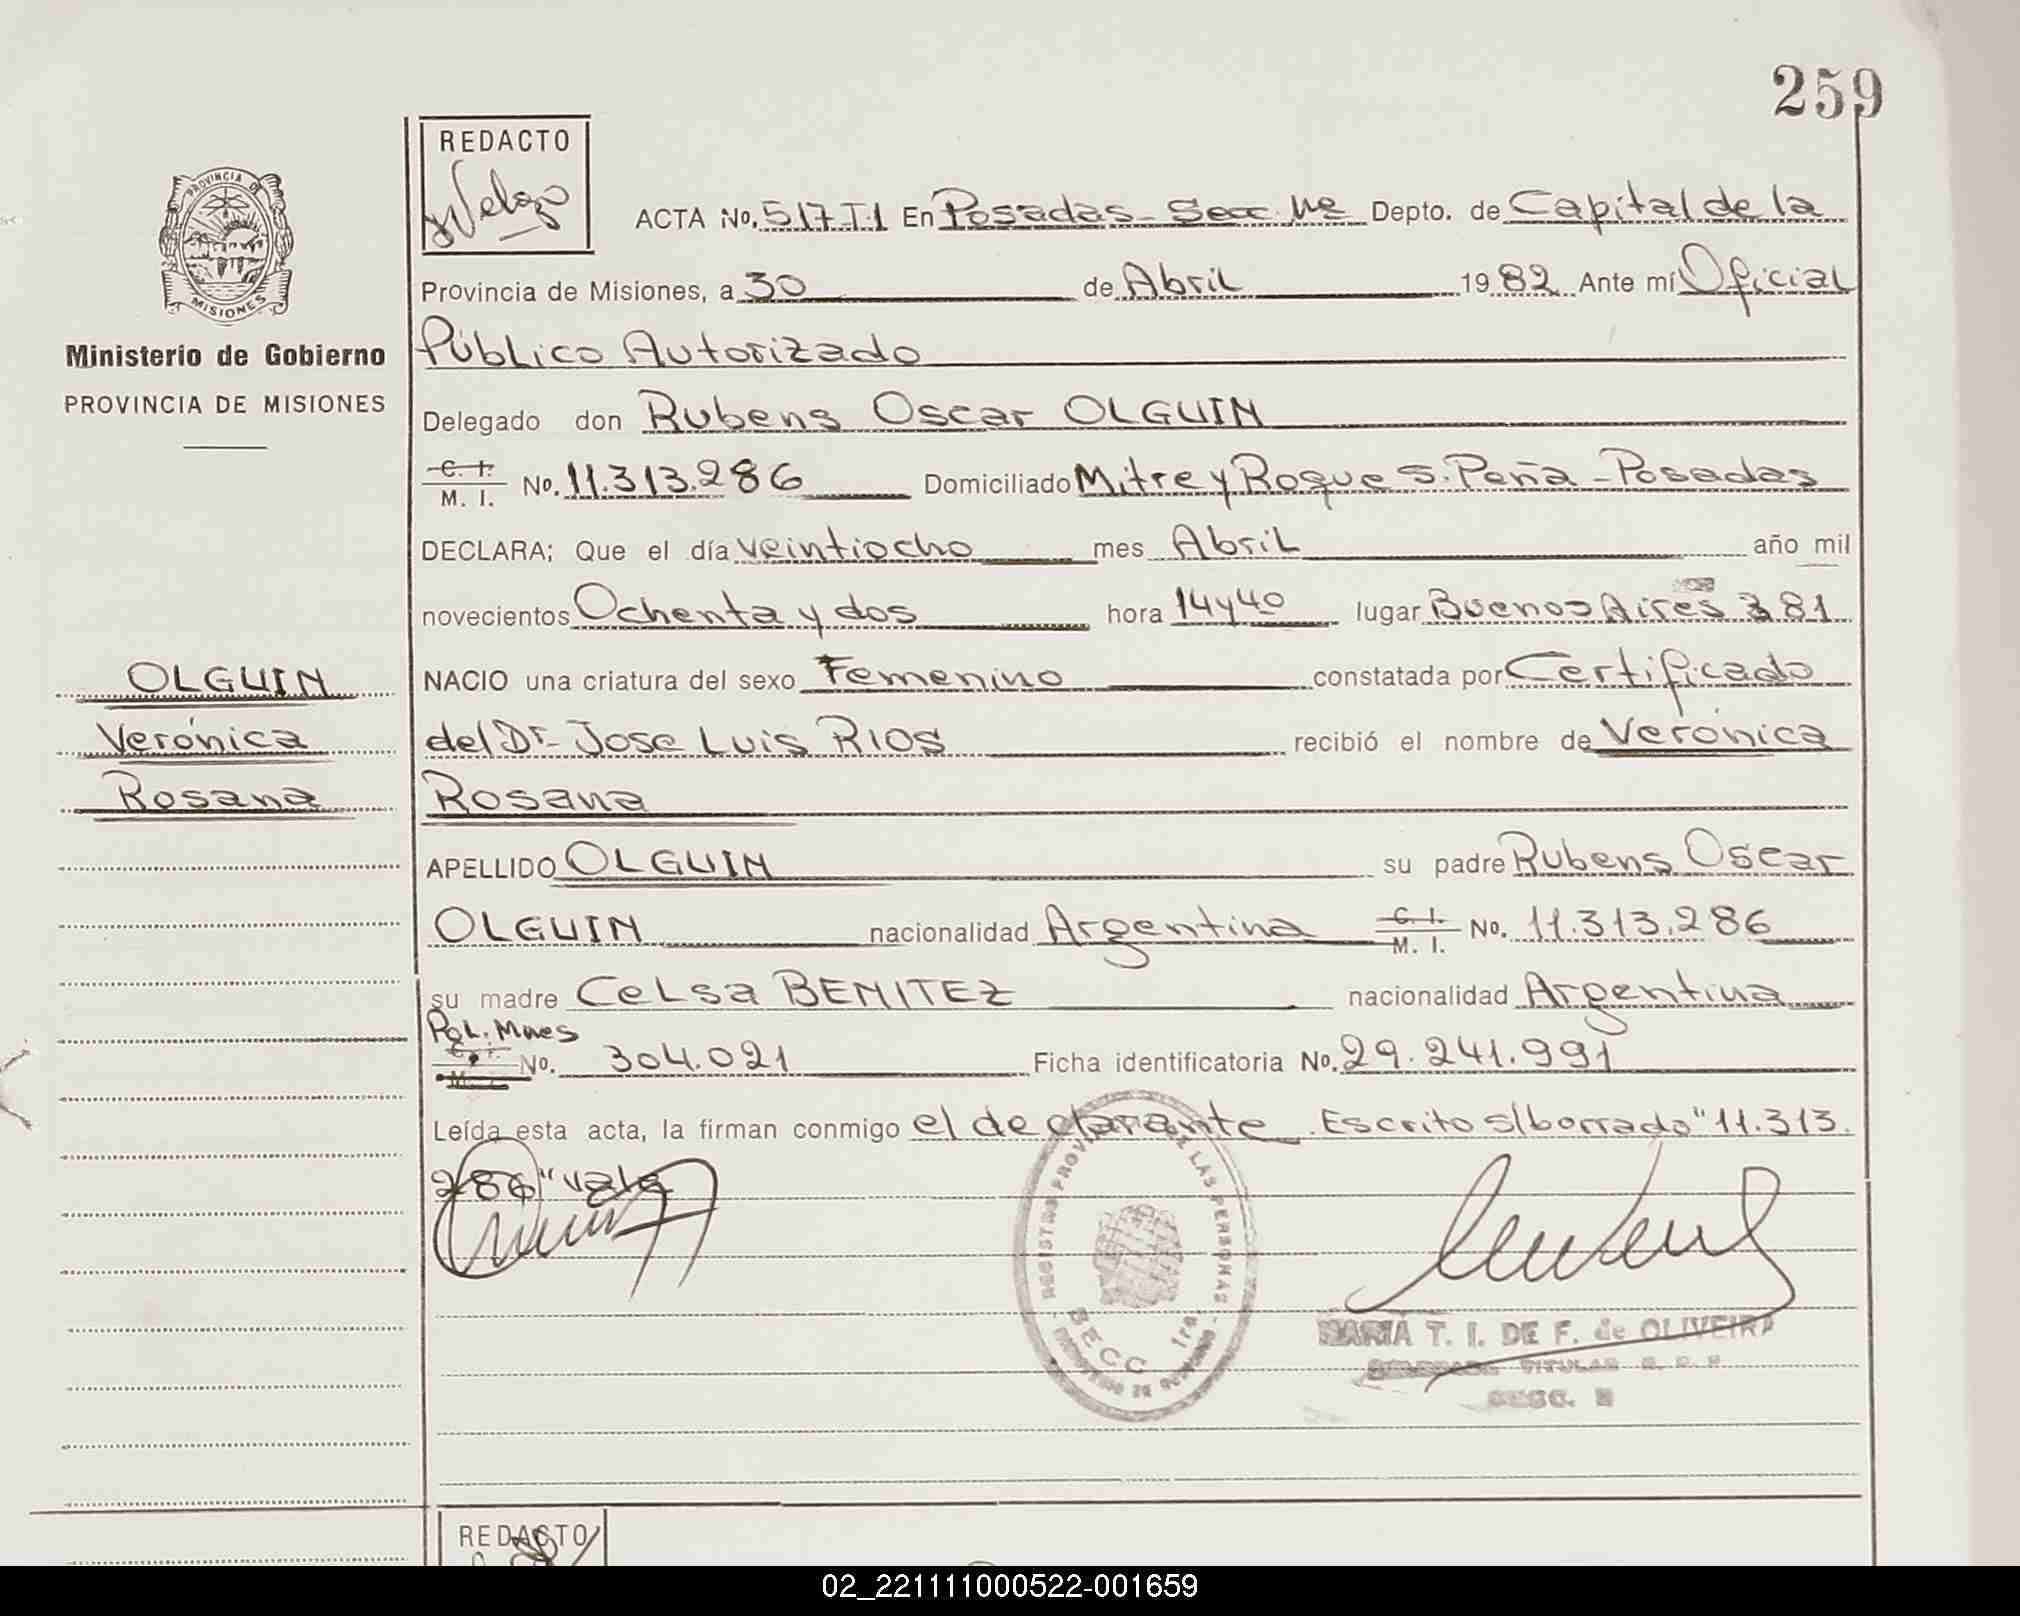 259
REDACTO
PROVINCIA DE
MISIONES
Ministerio de Gobierno
PROVINCIA DE MISIONES
ACTA No. 517 T.1 En Posadas - Secc. Depto. de Capital de la
Provincia de Misiones, a 30 de Abril 1982 Ante mí Oficial
Público Autorizado
Delegado don Rubens Oscar OLGUIN
C. I.
M. I. No. 11.313.286 Domiciliado Mitre y Roque S. Peña - Posadas
DECLARA; Que el día veintiocho mes Abril año mil
novecientos Ochenta y dos hora 14 y 40 lugar Buenos Aires 381
OLGUIN
Verónica
Rosana
NACIO una criatura del sexo Femenino constatada por Certificado
del Dr. Jose Luis RIOS recibió el nombre de Verónica
Rosana
APELLIDO OLGUIN su padre Rubens Oscar
OLGUIN nacionalidad Argentina C. I.
M. I. No. 11.313.286
su madre Celsa BENITEZ nacionalidad Argentina
Pol. Mnes
No. 304.021 Ficha identificatoria No. 29.241.991
Leída esta acta, la firman conmigo el declarante Escrito s/borrado "11.313.
286" vale
REGISTRO PROVINCIAL DE LAS PERSONAS
SECC. 1ra.
MARIA T. I. DE F. de OLIVEIRA
TITULAR
REDACTO
02_221111000522-001659